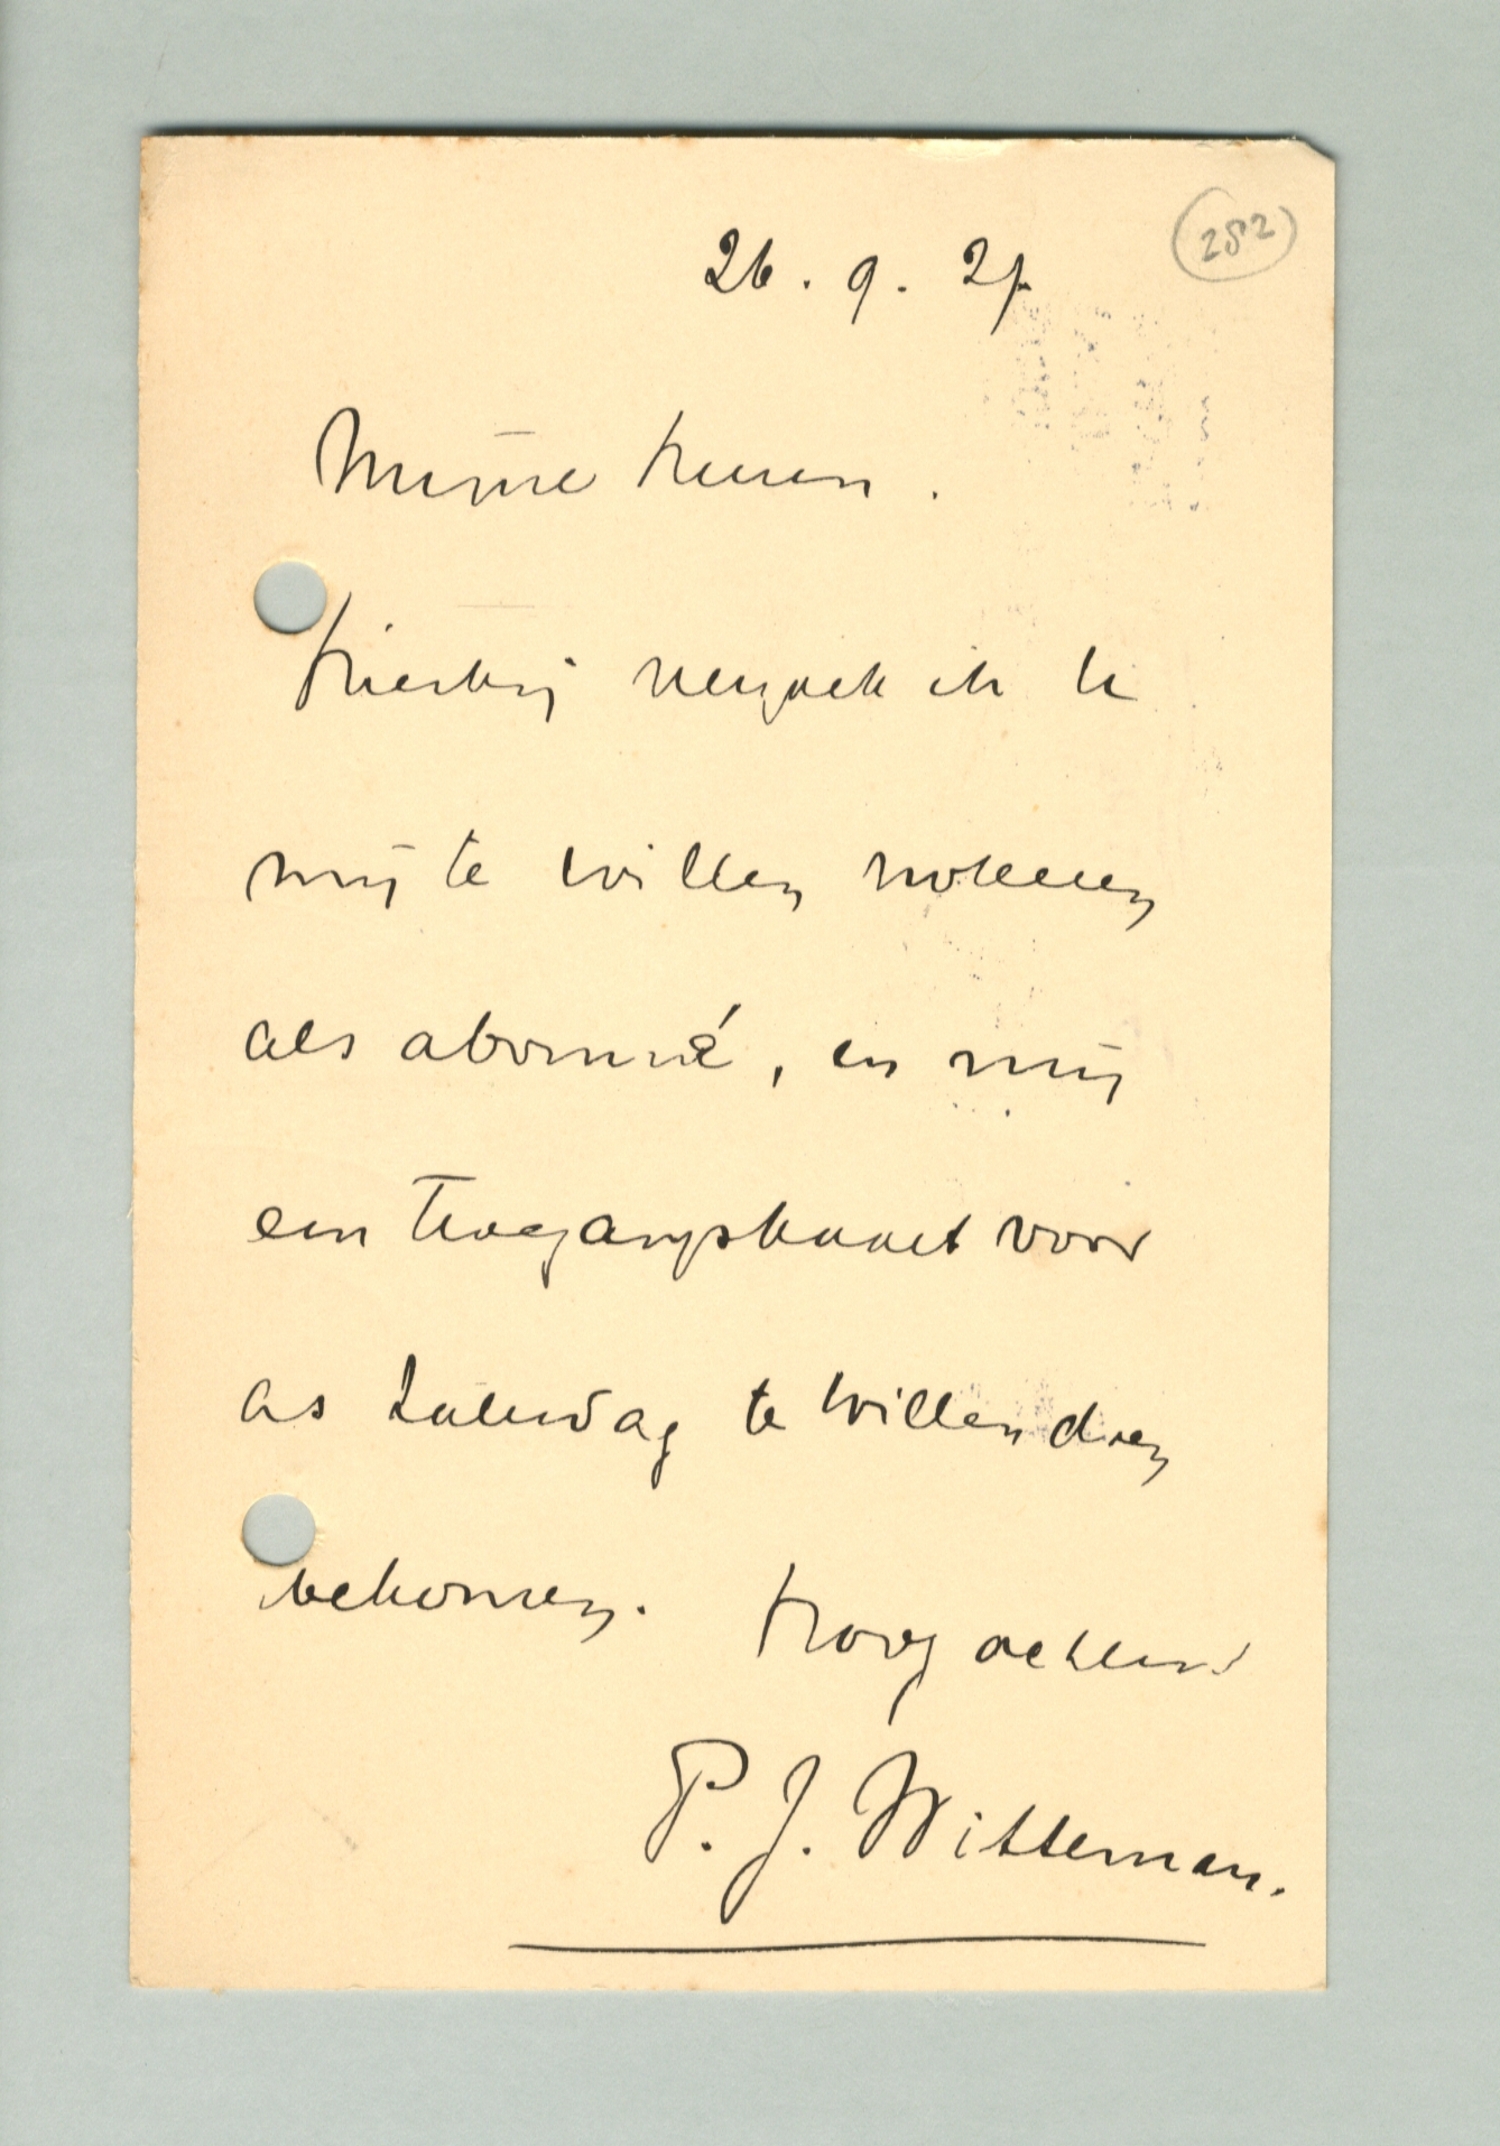 282
26.9.27
Mijne Heeren.
Hierbij verzoek ik U
mij te willen noteeren
als abonné, en mij
een Toegangskaart voor
as Zaterdag te willen doen
bekomen. Hoogachtend
P. J. Witteman.